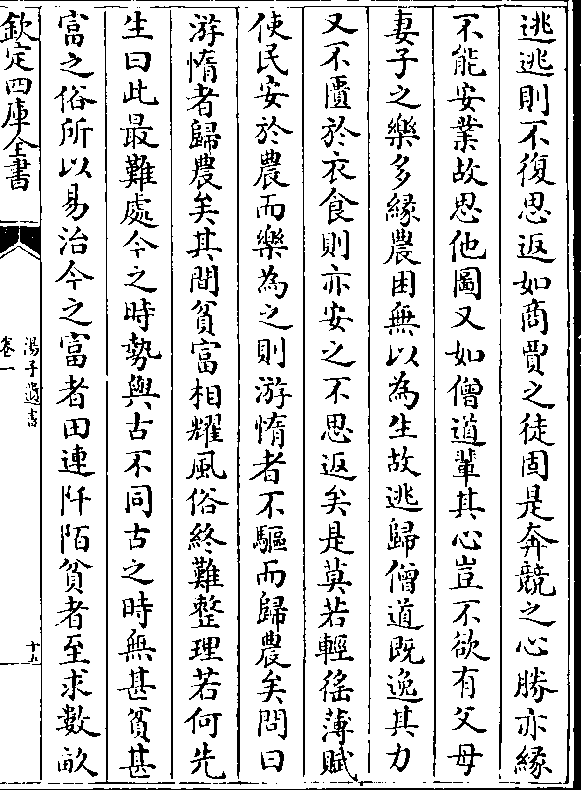 逃逃則不復思返如商賈之徒固是奔競之心勝亦緣
不能安業故思他圖又如僧道輩其心豈不欲有父母
妻子之樂多緣農困無以為生故逃歸僧道既逸其力
又不匱於衣食則亦安之不思返矣是莫若輕徭薄賦
使民安於農而樂為之則游惰者不驅而歸農矣問曰
游惰者歸農矣其間貧富相耀風俗終難整理若何先
生曰此最難處今之時勢與古不同古之時無甚貧甚
富之俗所以易治今之富者田連阡陌貧者至求數畝
欽定四庫全書
湯子遺書
卷一
十五